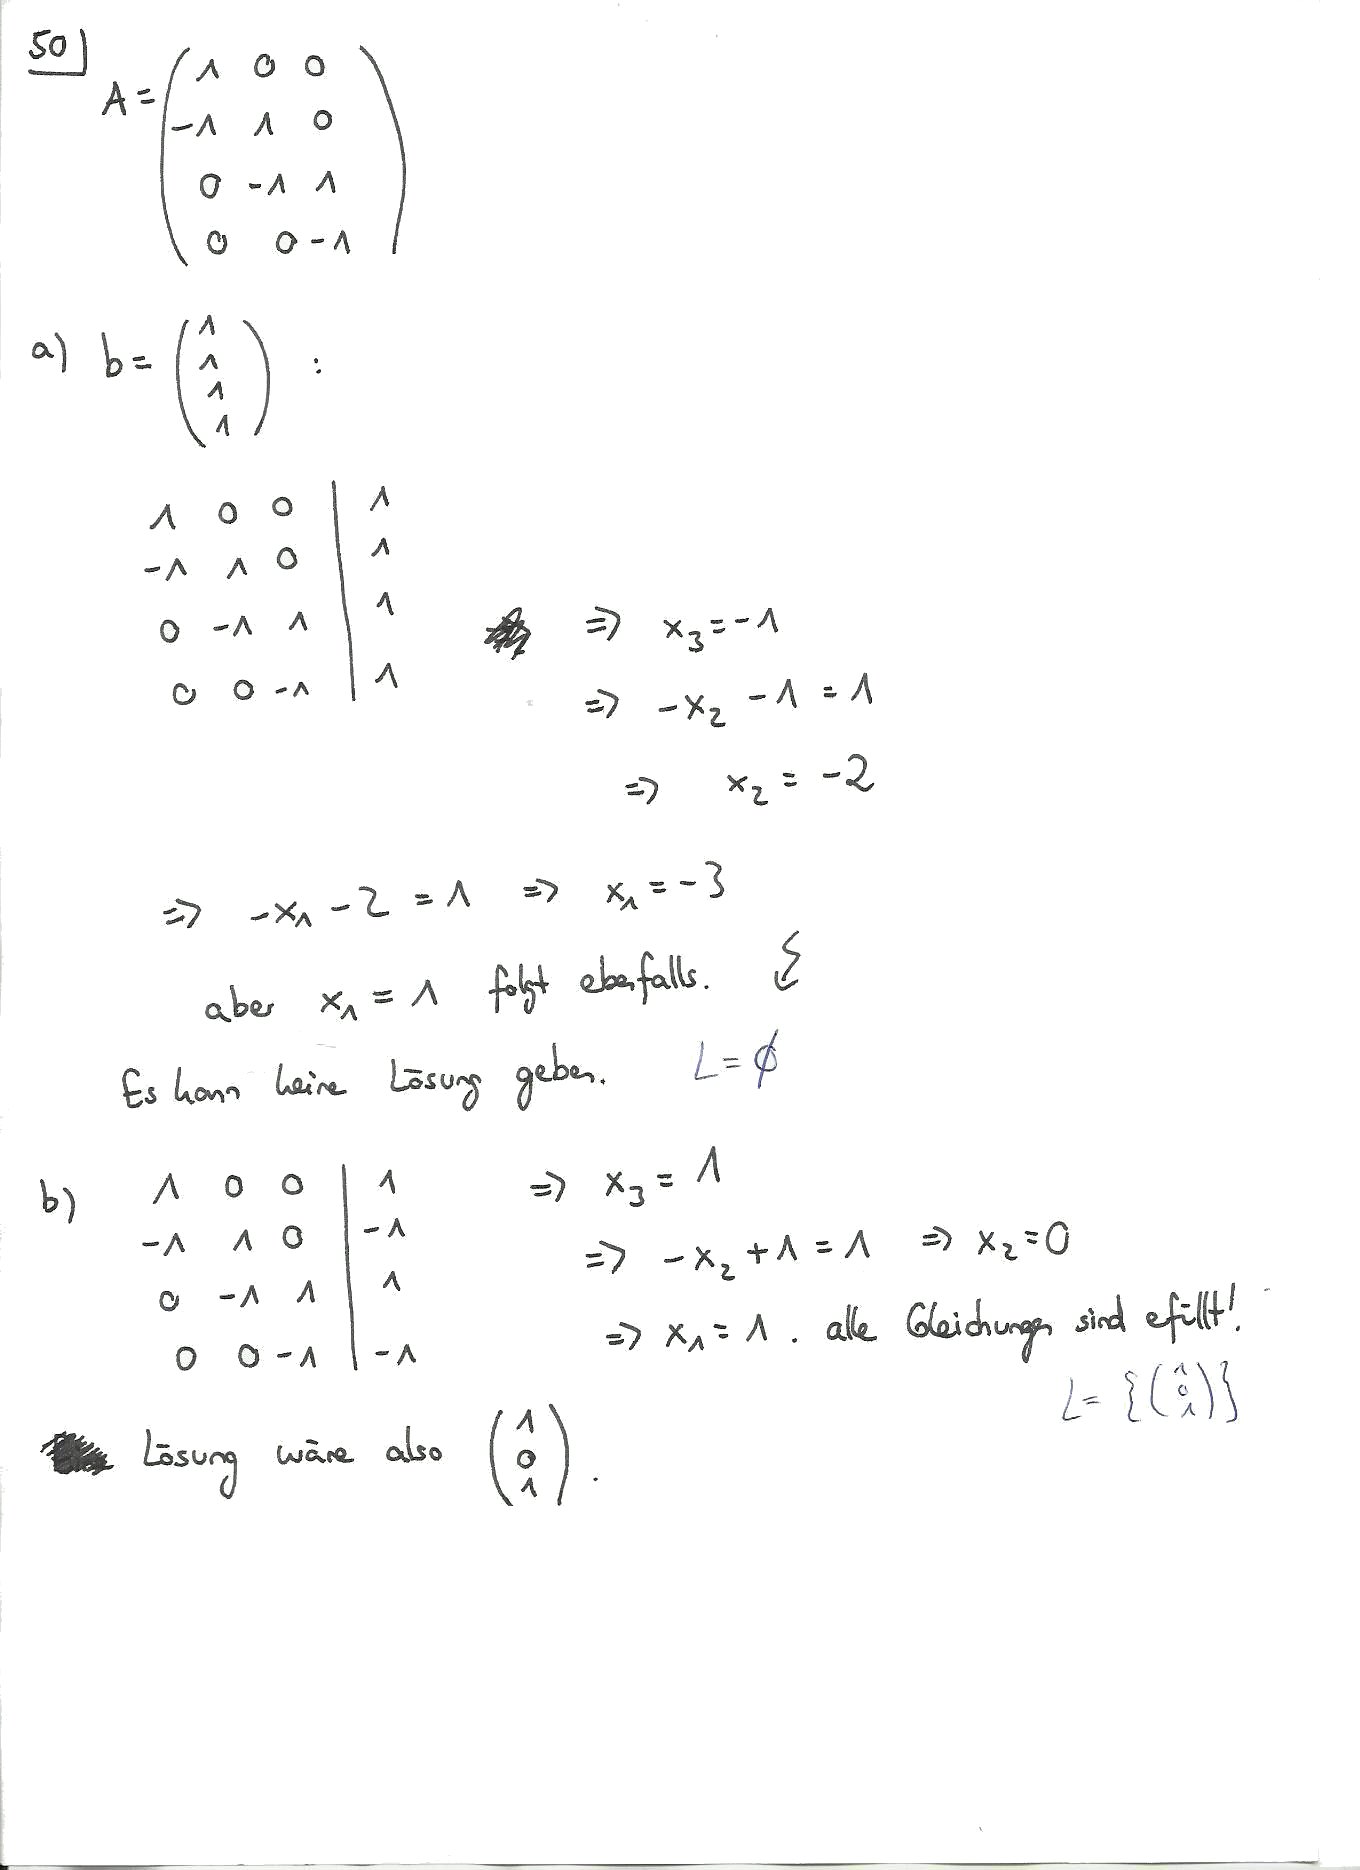 50)
A = ( 1 0 0
-1 1 0
0 -1 1
0 0 -1 )
a) b = ( 1
1
1
1 ) :
1 0 0 | 1
-1 1 0 | 1
0 -1 1 | 1 ⇒ x₃ = -1
0 0 -1 | 1 ⇒ -x₂ - 1 = 1
⇒ x₂ = -2
⇒ -x₁ - 2 = 1 ⇒ x₁ = -3
aber x₁ = 1 folgt ebenfalls. ↯
Es kann keine Lösung geben. L = ∅
b) 1 0 0 | 1 ⇒ x₃ = 1
-1 1 0 | -1 ⇒ -x₂ + 1 = 1 ⇒ x₂ = 0
0 -1 1 | 1 ⇒ x₁ = 1 . alle Gleichungen sind efüllt!
0 0 -1 | -1 L = {( 1 0 1 )}
Lösung wäre also ( 1 0 1 ) .